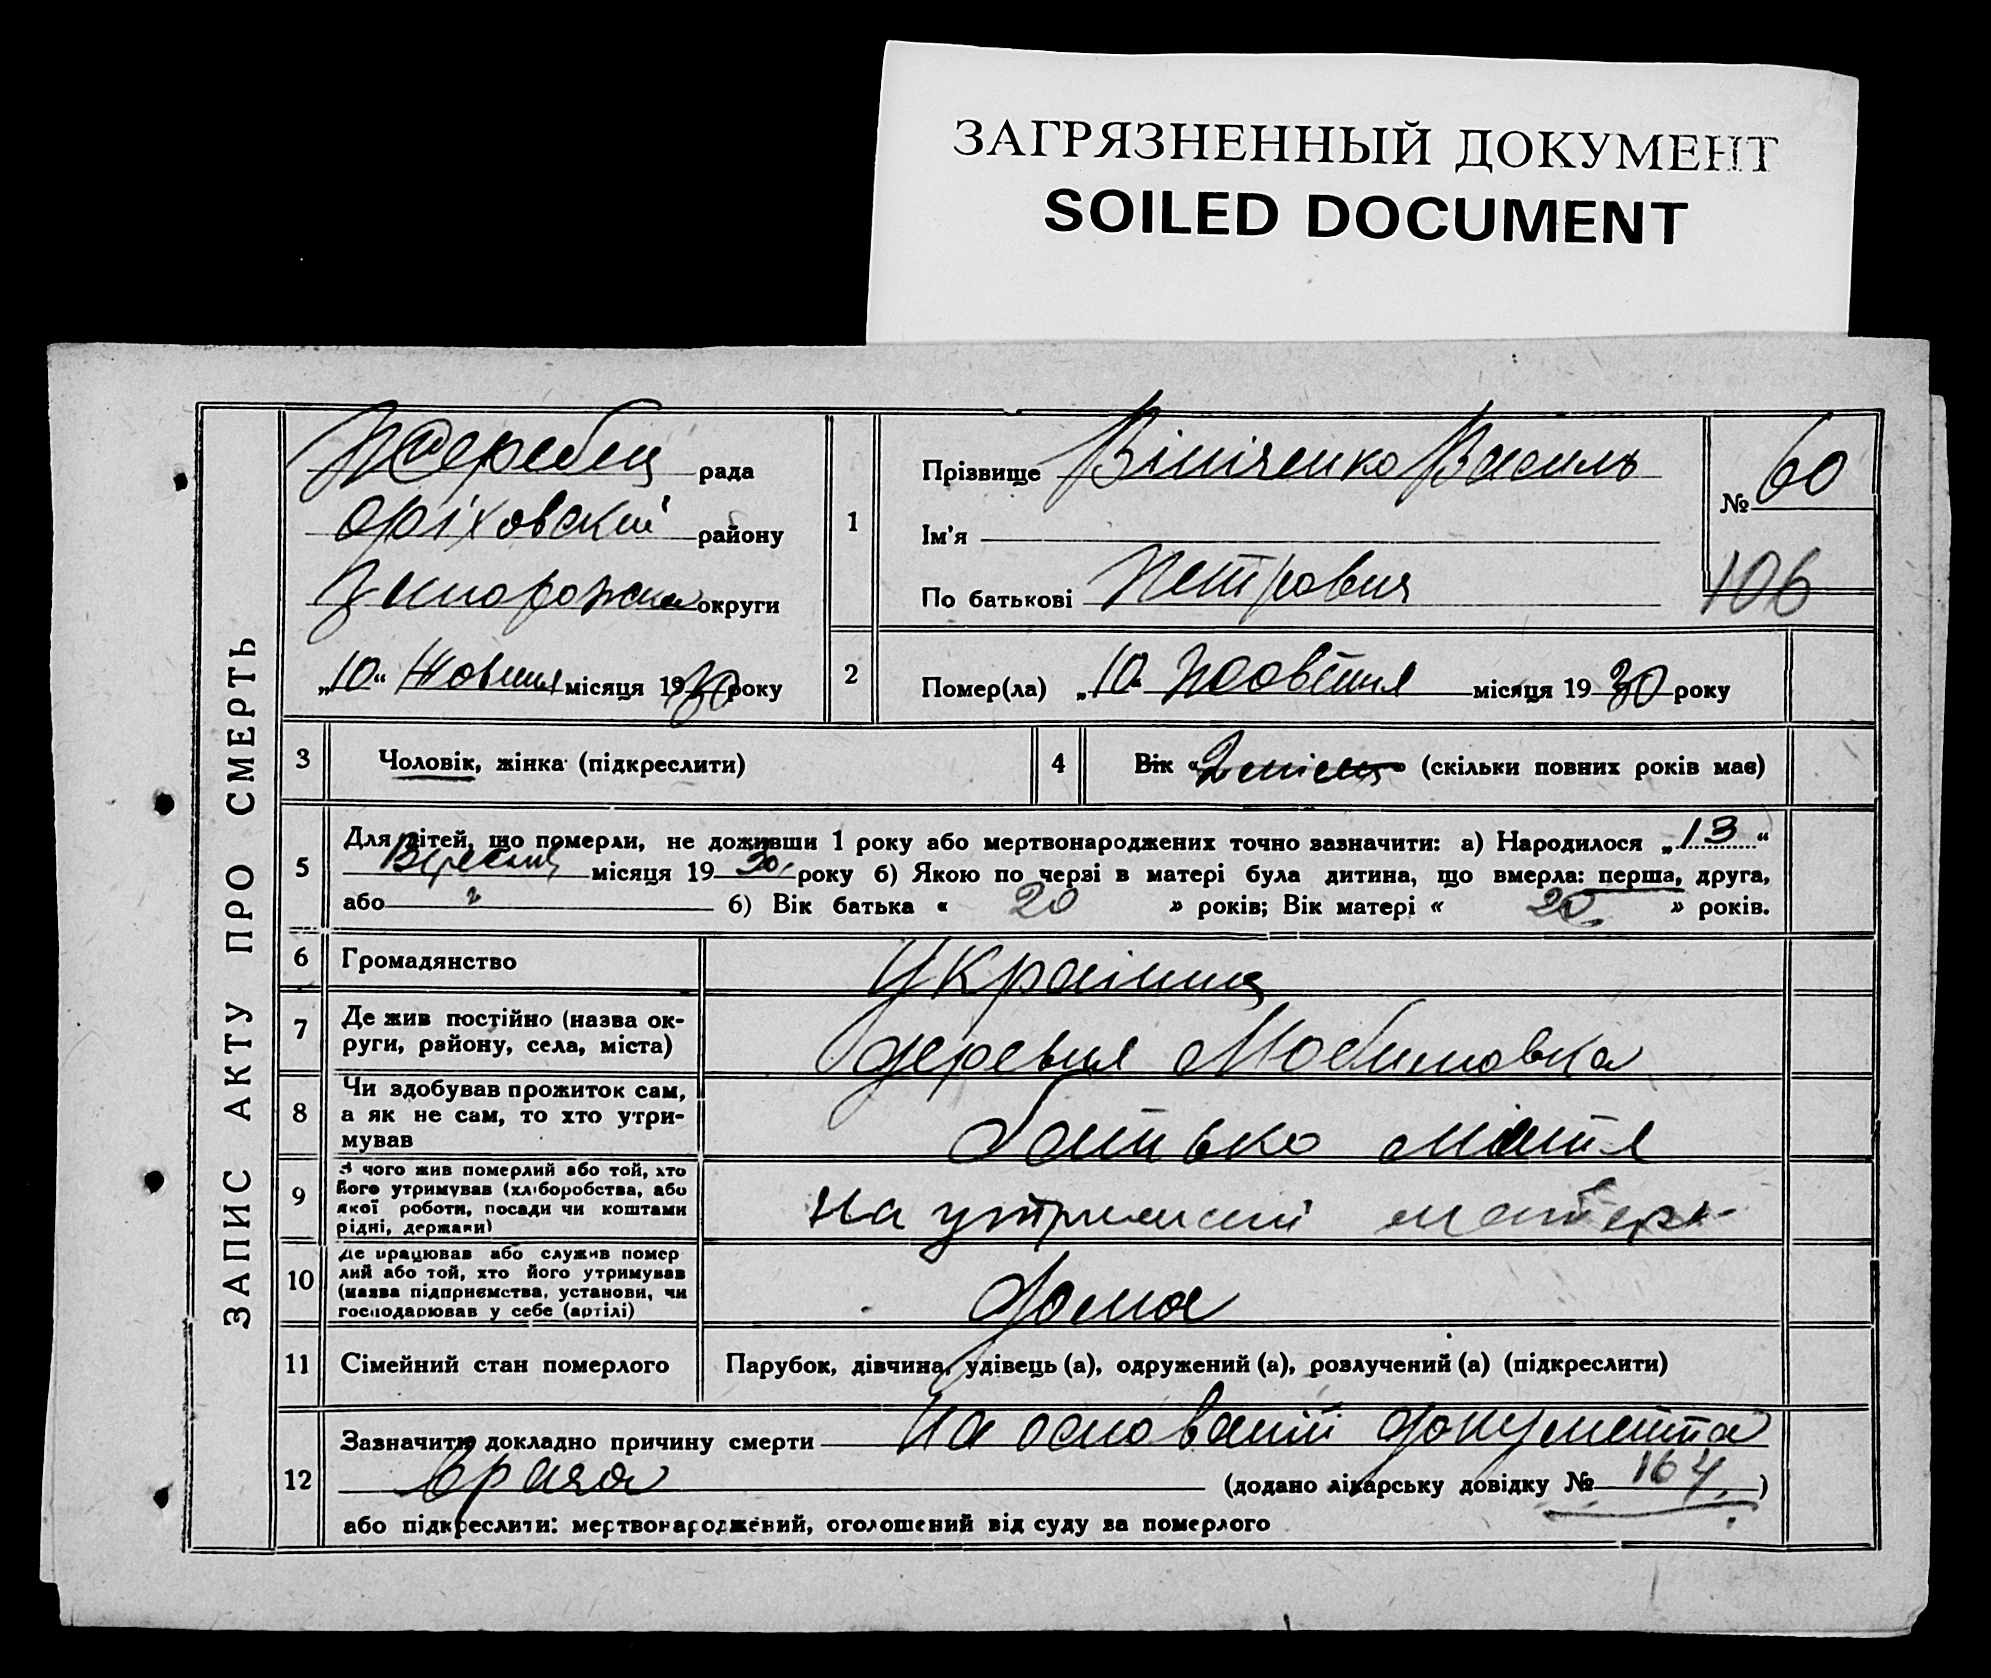 ЗАГРЯЗНЕННЫЙ ДОКУМЕНТ
SOILED DOCUMENT
ЗАПИС АКТУ ПРО СМЕРТЬ
Жеребец рада
Оріховский району
Запорожска округи
„10“ Жовтня місяця 1930 року
1
Прізвище Вініченко Василь
Ім'я
По батькові Петрович
№ 60
106
2
Помер(ла) „10“ Жовтня місяця 1930 року
3
Чоловік, жінка (підкреслити)
4
Вік « 2 місяц » (скільки повних років має)
5
Для дітей, що померли, не доживши 1 року або мертвонароджених точно зазначити: а) Народилося „13“
Вересня місяця 1930 року б) Якою по черзі в матері була дитина, що вмерла: перша, друга,
або б) Вік батька « 20 » років; Вік матері « 20 » років.
6
Громадянство
Украіниц
7
Де жив постійно (назва ок-
руги, району, села, міста)
деревня
8
Чи здобував прожиток сам,
а як не сам, то хто утри-
мував
батько мати
9
З чого жив померлий або той, хто
його утримував (хліборобства, або
якої роботи, посади чи коштами
рідні, держави)
на утриманні матери
10
Де працював або служив помер
лий або той, хто його утримував
(назва підприємства, установи, чи
господарював у себе (артілі)
дома
11
Сімейний стан померлого
Парубок, дівчина, удівець (а), одружений (а), розлучений (а) (підкреслити)
12
Зазначити докладно причину смерти на основаніи документа
врача (додано лікарську довідку № 164.)
або підкреслити: мертвонароджений, оголошений від суду за померлого